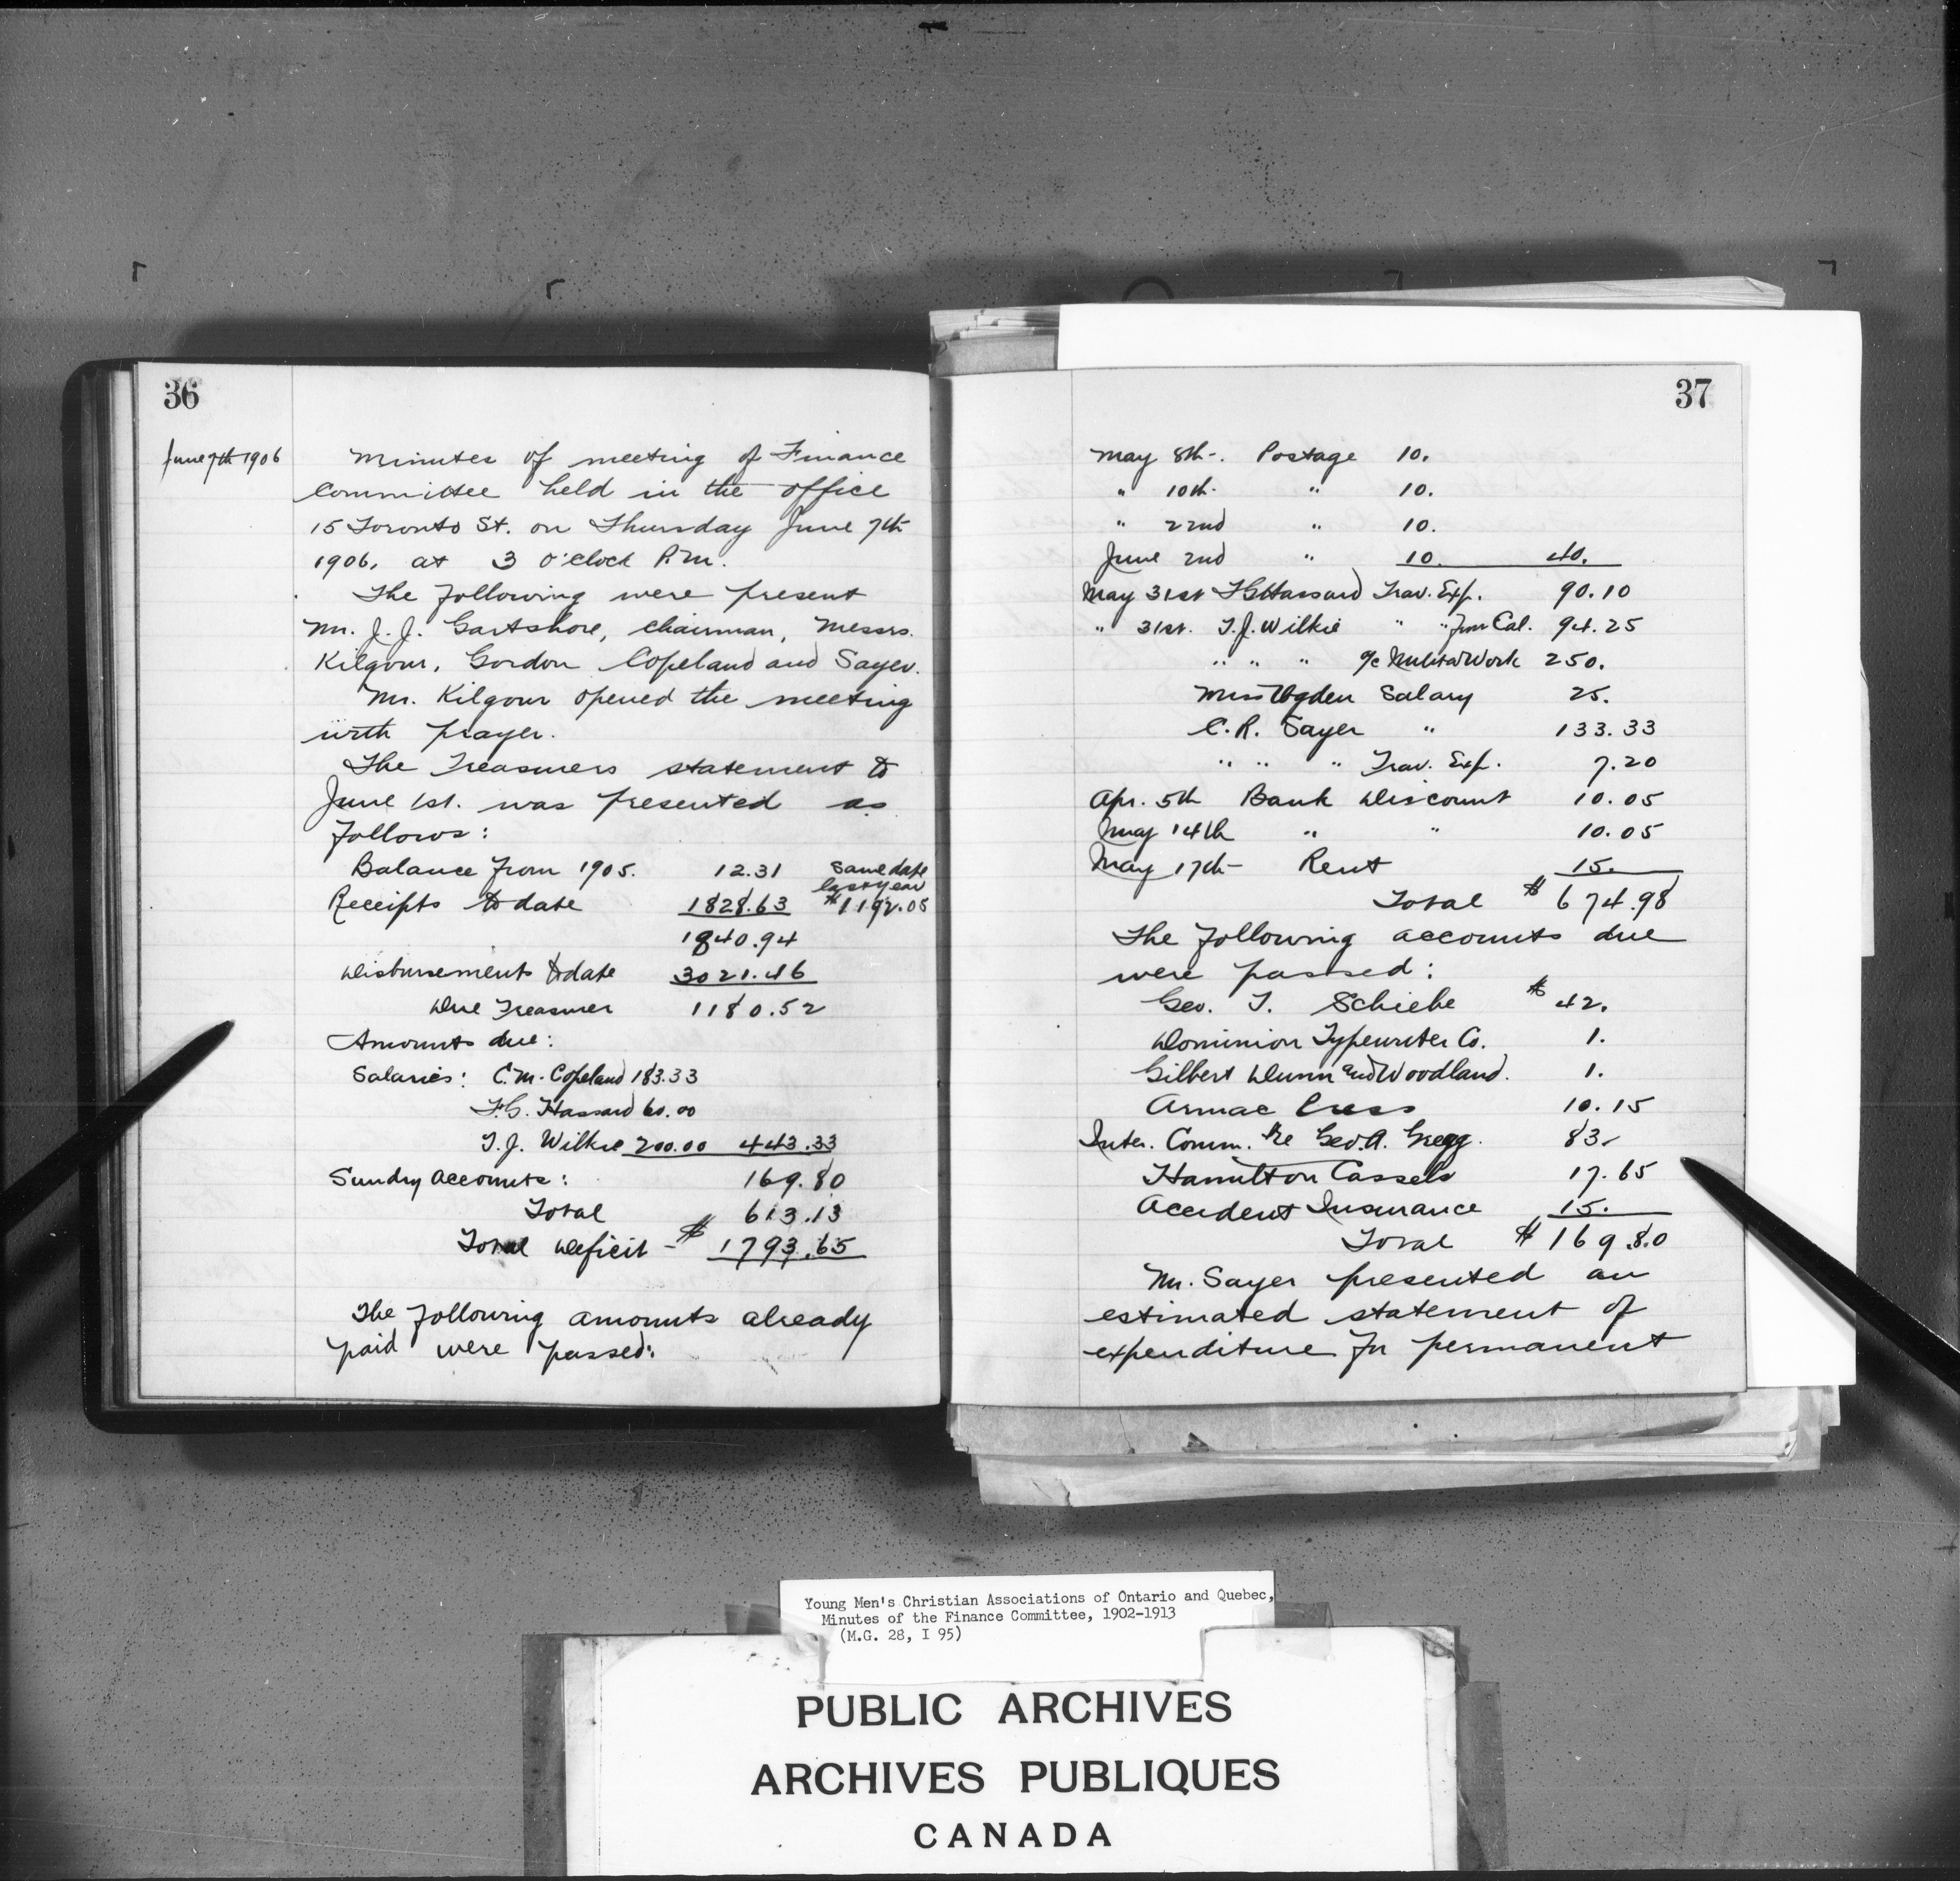 36
June 7th 1906
Minutes of meeting of Finance
Committee held in the office
15 Toronto St. on Thursday June 7th
1906. at 3 o'clock P.M.
The following were present
Mr. J. J. Gartshore, Chairman, Messrs.
Kilgour, Gordon Copeland and Sayer.
Mr. Kilgour opened the meeting
with prayer.
The Treasurers statement to
June 1st. was presented as
follows:
Balance from 1905. 12.31 Same date
last year
Receipts to date 1828.63 $1192.05
1840.94
Disbursements to date 3021.46
Due Treasurer 1180.52
Amounts due:
Salaries: C.M. Copeland 183.33
F.G. Hassard 60.00
T.J. Wilkie 200.00 443.33
Sundry Accounts: 169.80
Total 613.13
Total Deficit - $ 1793.65
The following amounts already
paid were passed:
37
May 8th-. Postage 10.
" 10th. " 10.
" 22nd " 10.
June 2nd " 10. 40.
May 31st F G Hassard Trav. Exp. 90.10
" 31st. T.J. Wilkie " " from Cal. 94.25
" " " a/c Milita Work 250.
Miss Ogden Salary 25.
C.R. Sayer " 133.33
" " " Trav. Exp. 7.20
Apr. 5th Bank Discount 10.05
May 14th " " 10.05
May 17th- Rent 15.
Total $ 674.98
The following accounts due
were passed:
Geo. T. Schiebe $ 42.
Dominion Typewriter Co. 1.
Gilbert Dunn and Woodland. 1.
Armac Press 10.15
Inter. Comm. re Geo. A. Gregg. 83.
Hamilton Cassels 17.65
Accident Insurance 15.
Total $ 169.80
Mr. Sayer presented an
estimated statement of
expenditure for permanent
Young Men's Christian Associations of Ontario and Quebec,
Minutes of the Finance Committee, 1902-1913
(M.G. 28, I 95)
PUBLIC ARCHIVES
ARCHIVES PUBLIQUES
CANADA